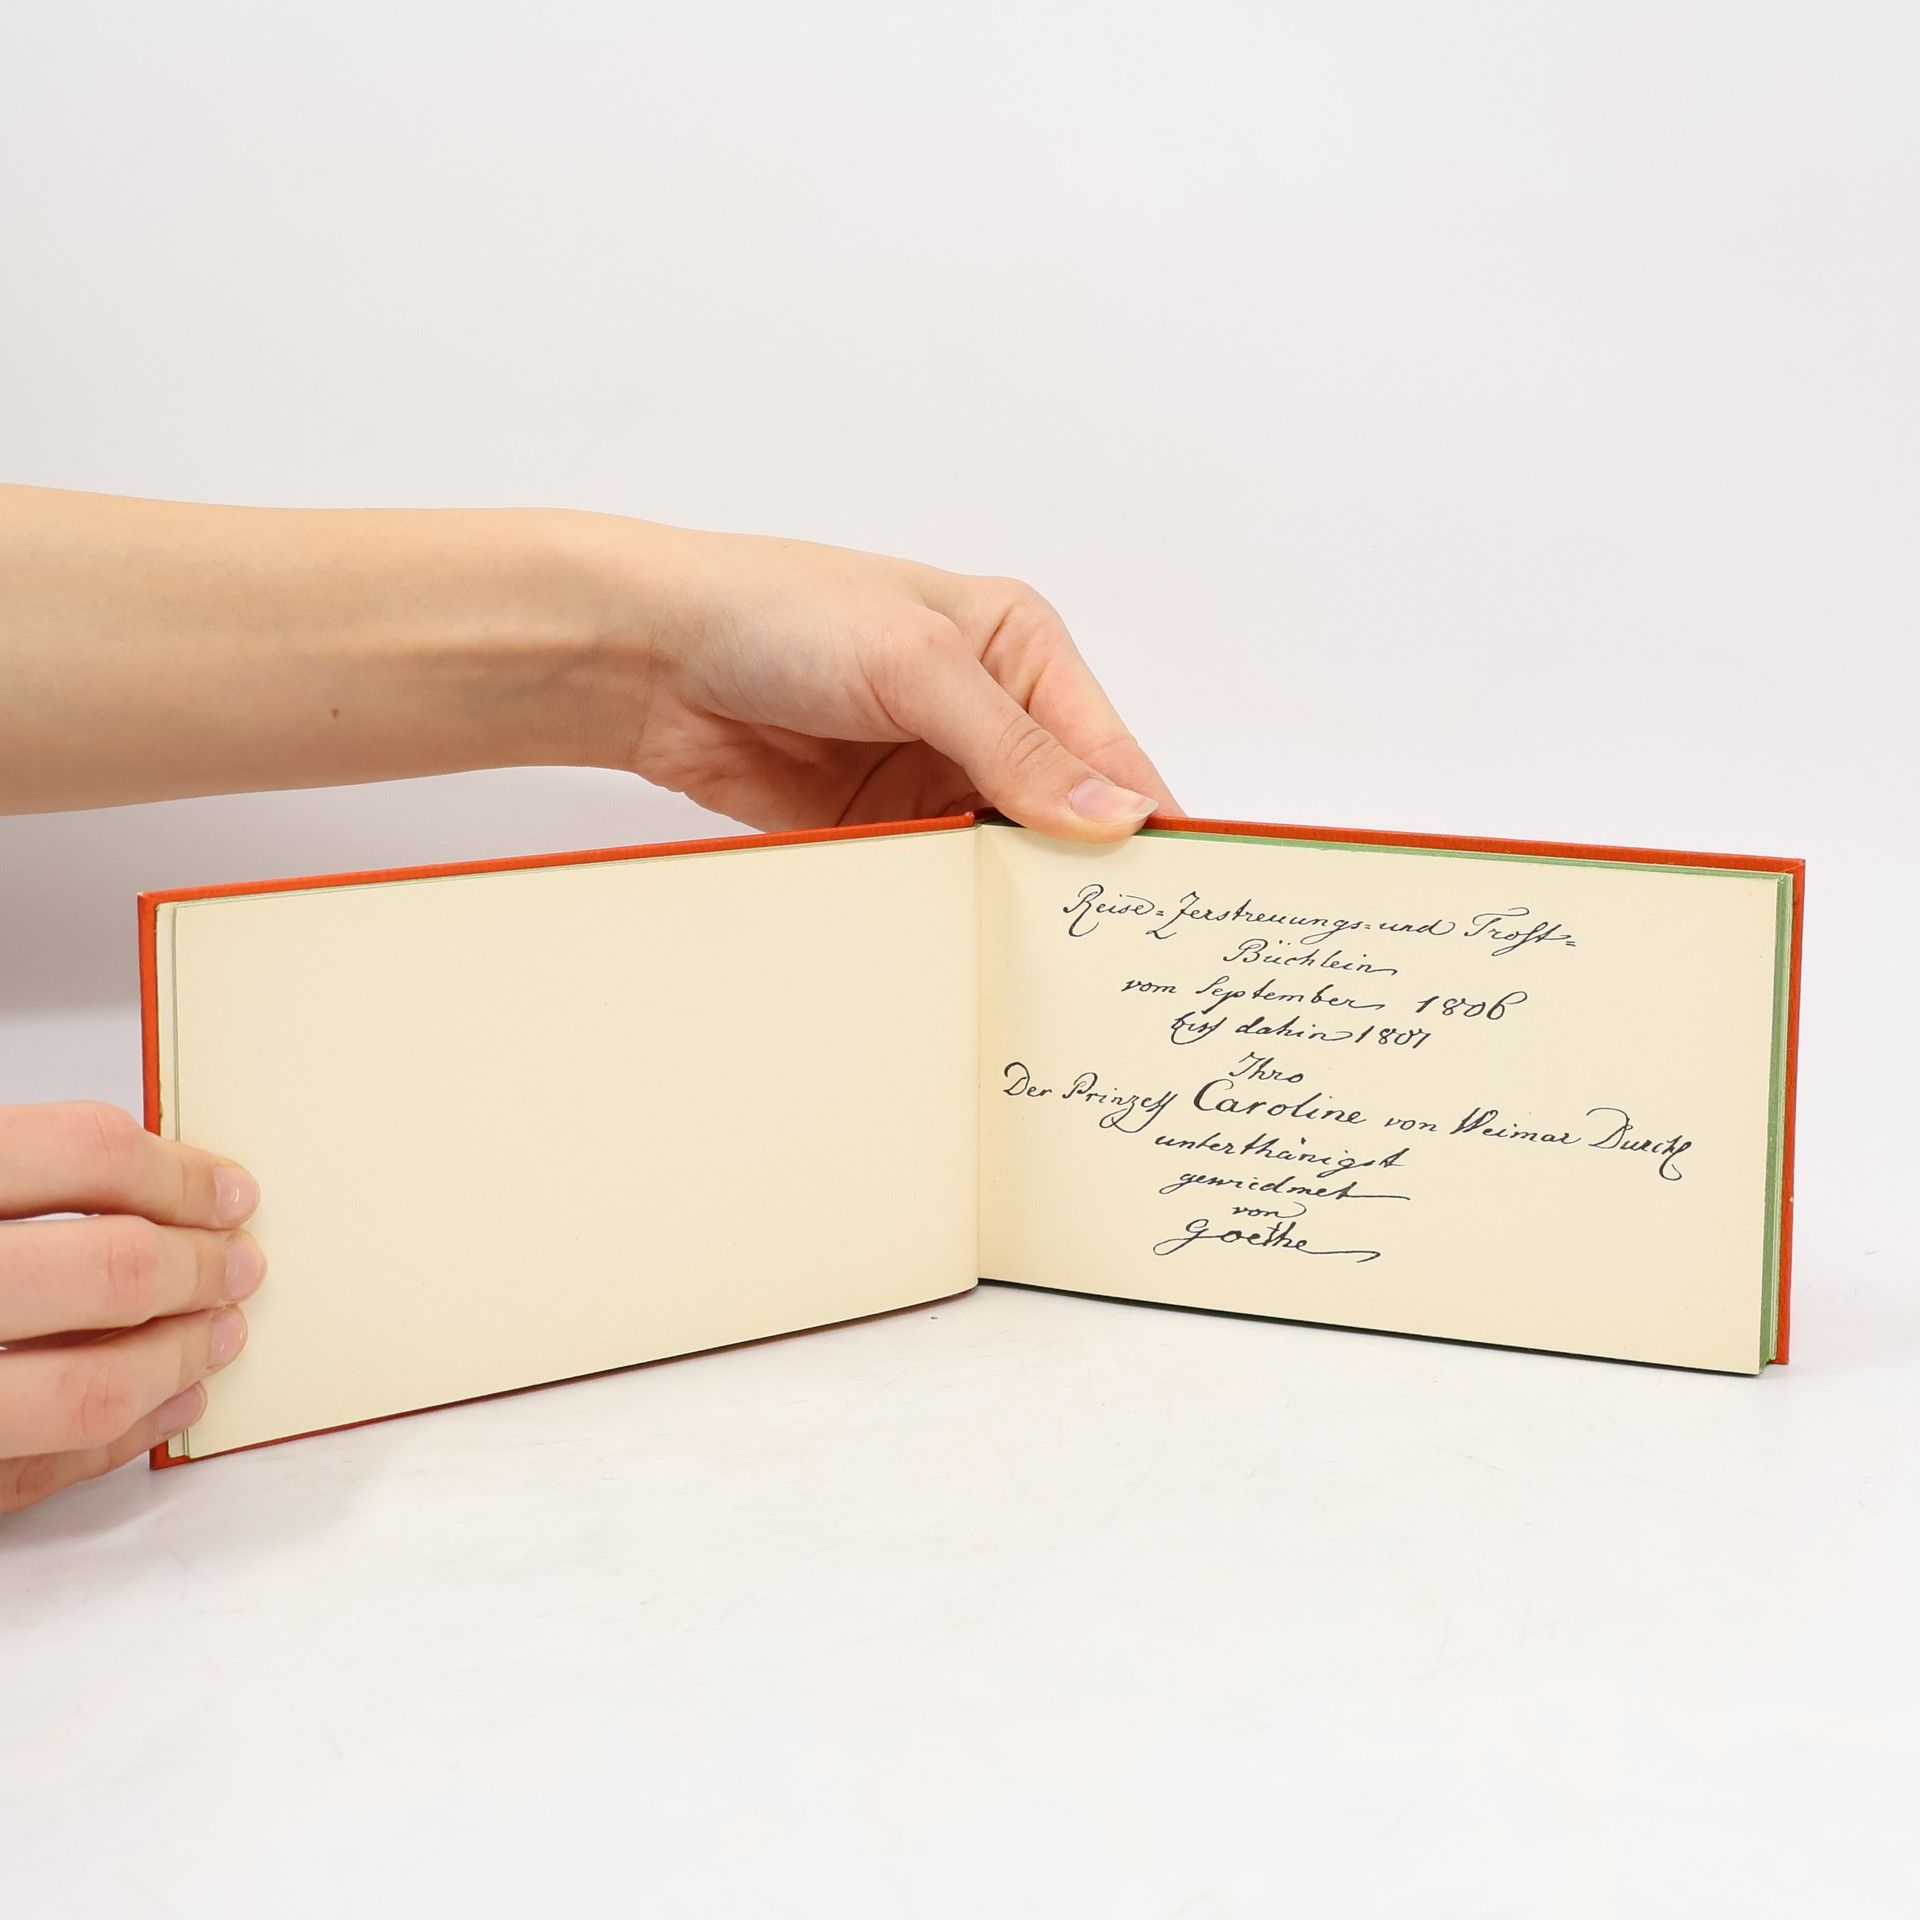 Reise=Zerstreuungs=und Trost=
Büchlein
vom September 1806
biss dahin 1807
Ihro
Der Prinzess Caroline von Weimar Durchl
unterthänigst
gewiedmet
von
Goethe